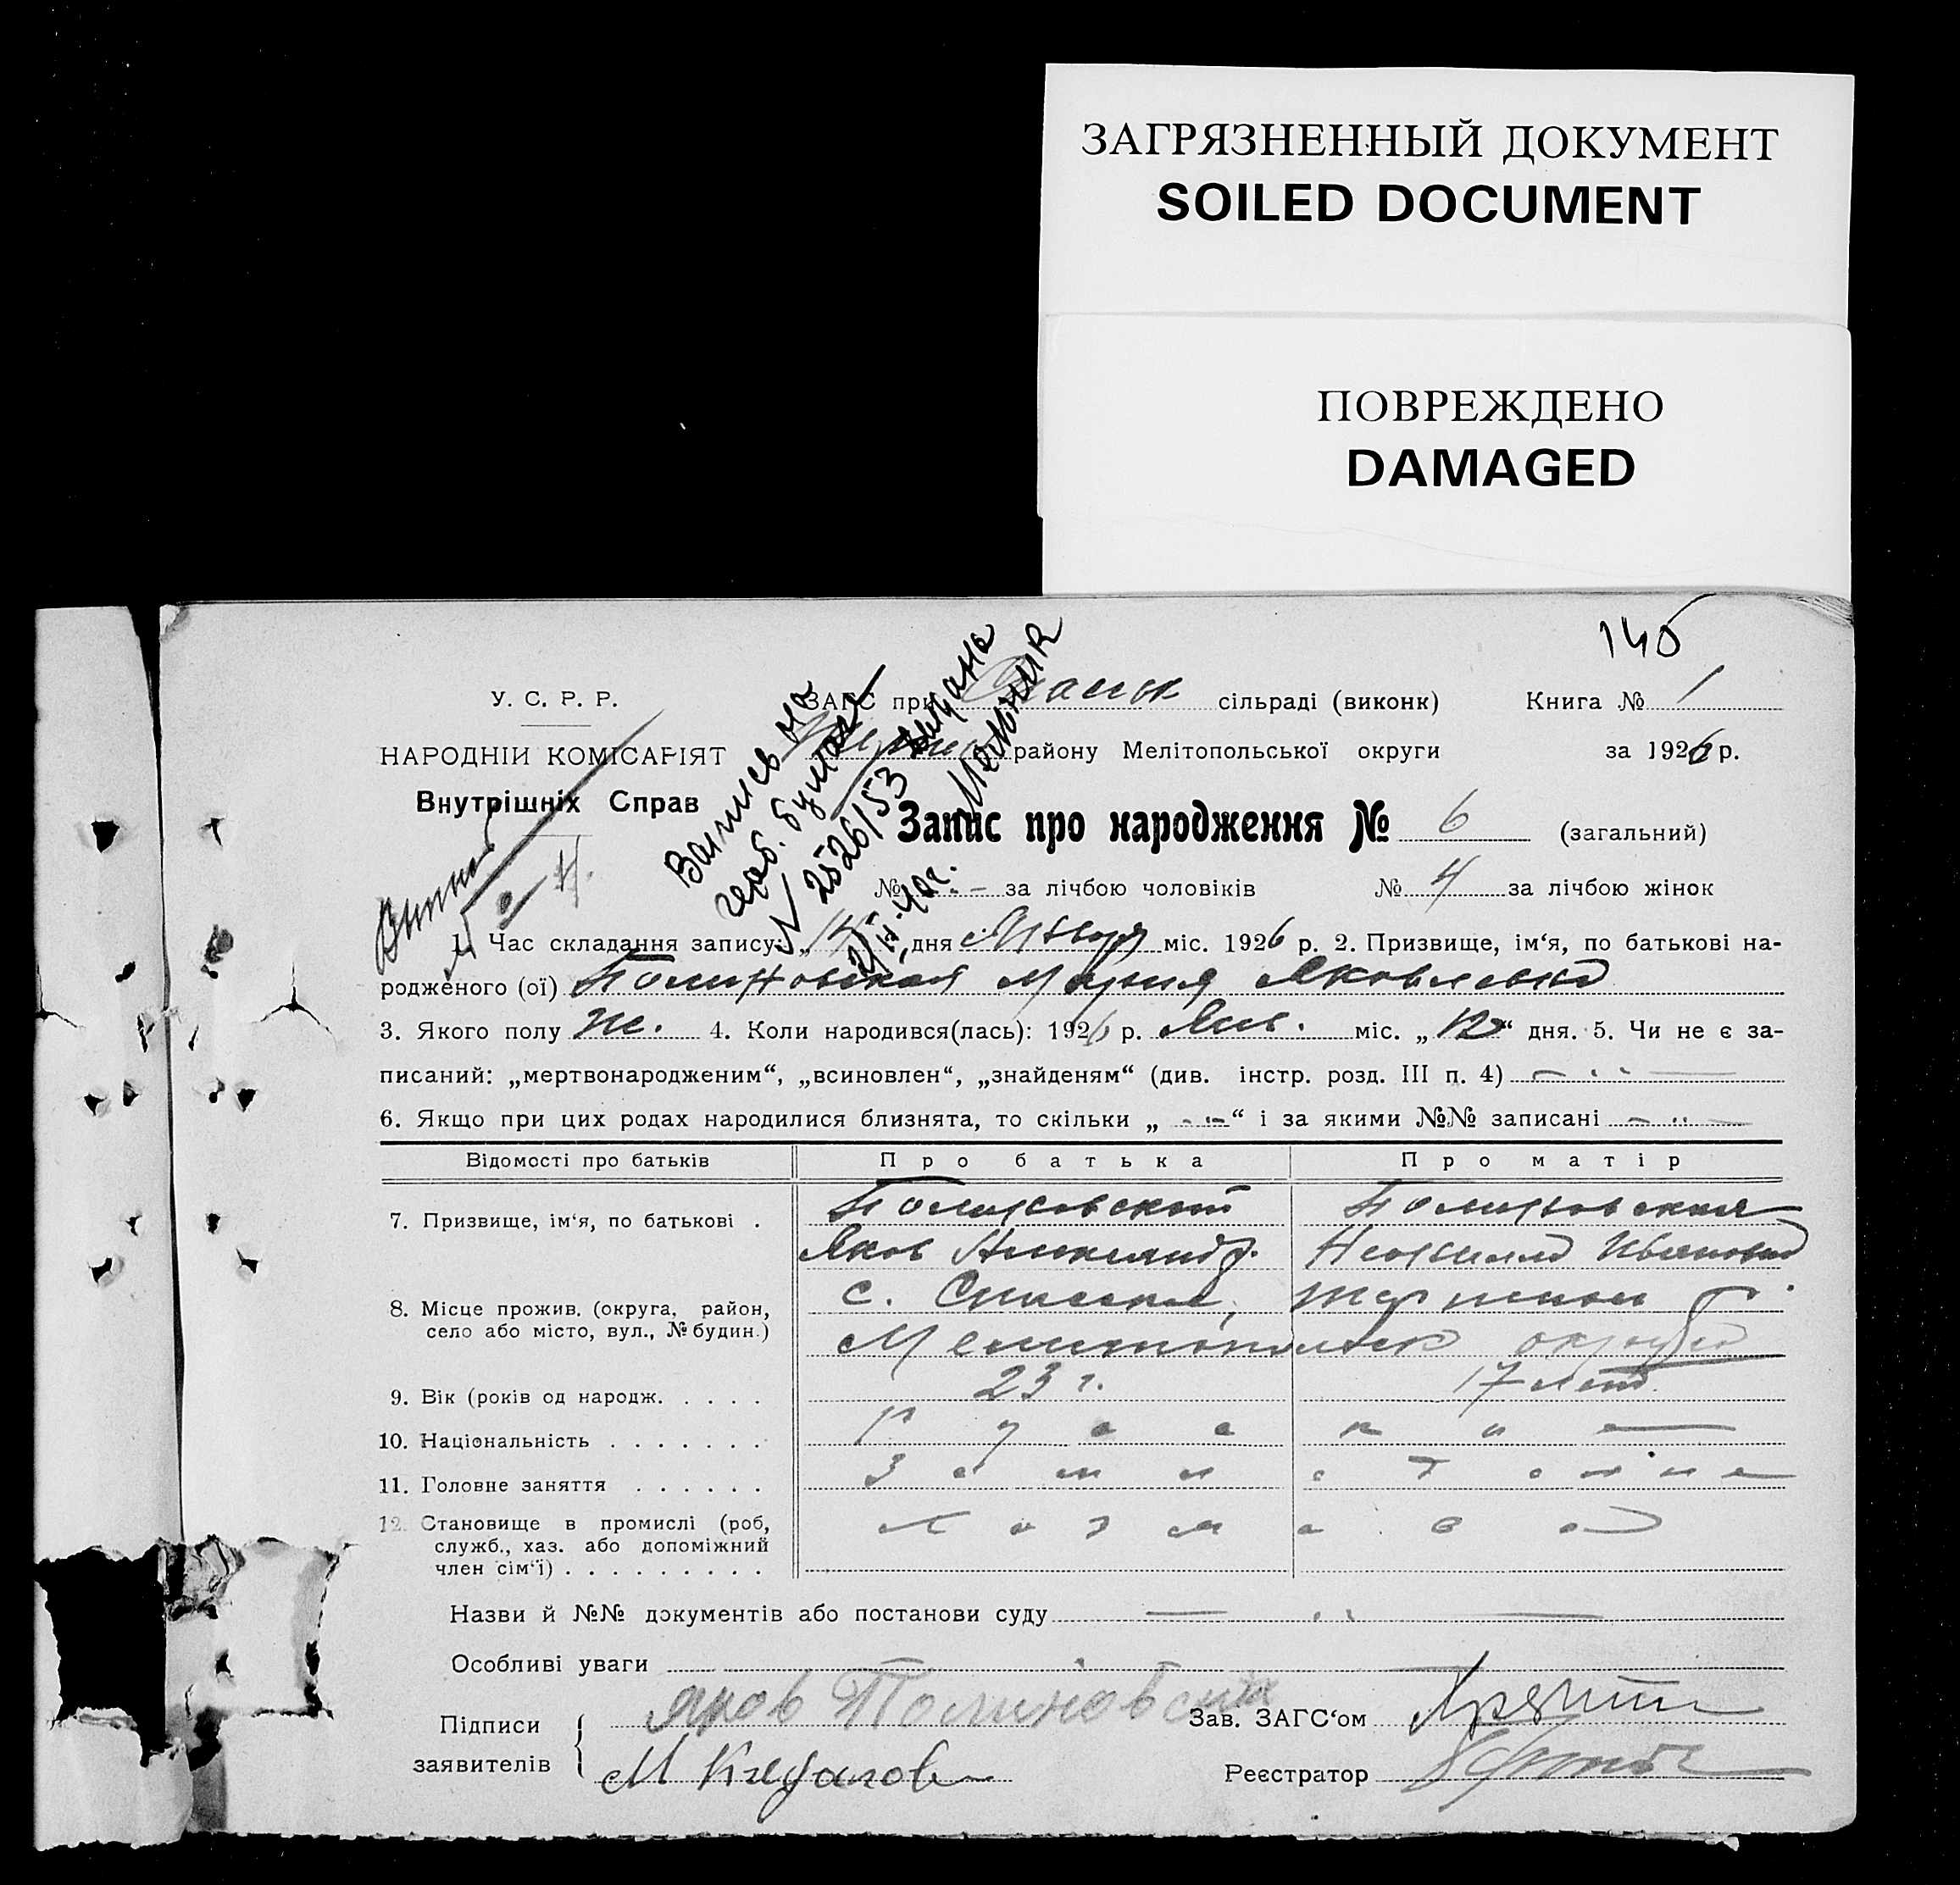 ЗАГРЯЗНЕННЫЙ ДОКУМЕНТ
SOILED DOCUMENT
ПОВРЕЖДЕНО
DAMAGED
145
У. С. Р. Р.
НАРОДНІЙ КОМІСАРІЯТ
Внутрішніх Справ
ЗАГС при сільраді (виконк) Книга № 1
району Мелітопольської округи за 1926 р.
Запис про народження № 6 (загальний)
№ - за лічбою чоловіків № 4 за лічбою жінок
на
№ 2526/53
1. Час складання запису: „14“ дня Января міс. 1926 р. 2. Призвище, ім‘я, по батькові на-
родженого (ої) Полиновская Мария Яковлевна
3. Якого полу ж. 4. Коли народився(лась): 1926 р. Янв. міс. „12“ дня. 5. Чи не є за-
писаний: „мертвонародженим“, „всиновлен“, „знайденям“ (див. інстр. розд. III п. 4)
6. Якщо при цих родах народилися близнята, то скільки „ - “ і за якими №№ записані
Відомості про батьків Про батька Про матір
7. Призвище, ім‘я, по батькові . Полиновский Полиновская
Яков Александр. Ивановна
8. Місце прожив. (округа, район, село або місто, вул., № будин.) с.
Мелитопольск округа
9. Вік (років од народж. . . . . 23 г. 17 лет
10. Національність . . . . . . . Русские
11. Головне заняття . . . . . . Земледелие
12. Становище в промислі (роб, служб., хаз. або допоміжний член сім‘ї) . . . . . . . . .
Назви й №№ документів або постанови суду
Особливі уваги
Підписи заявителів { Яков Полиновский Зав. ЗАГС‘ом
М Реєстратор